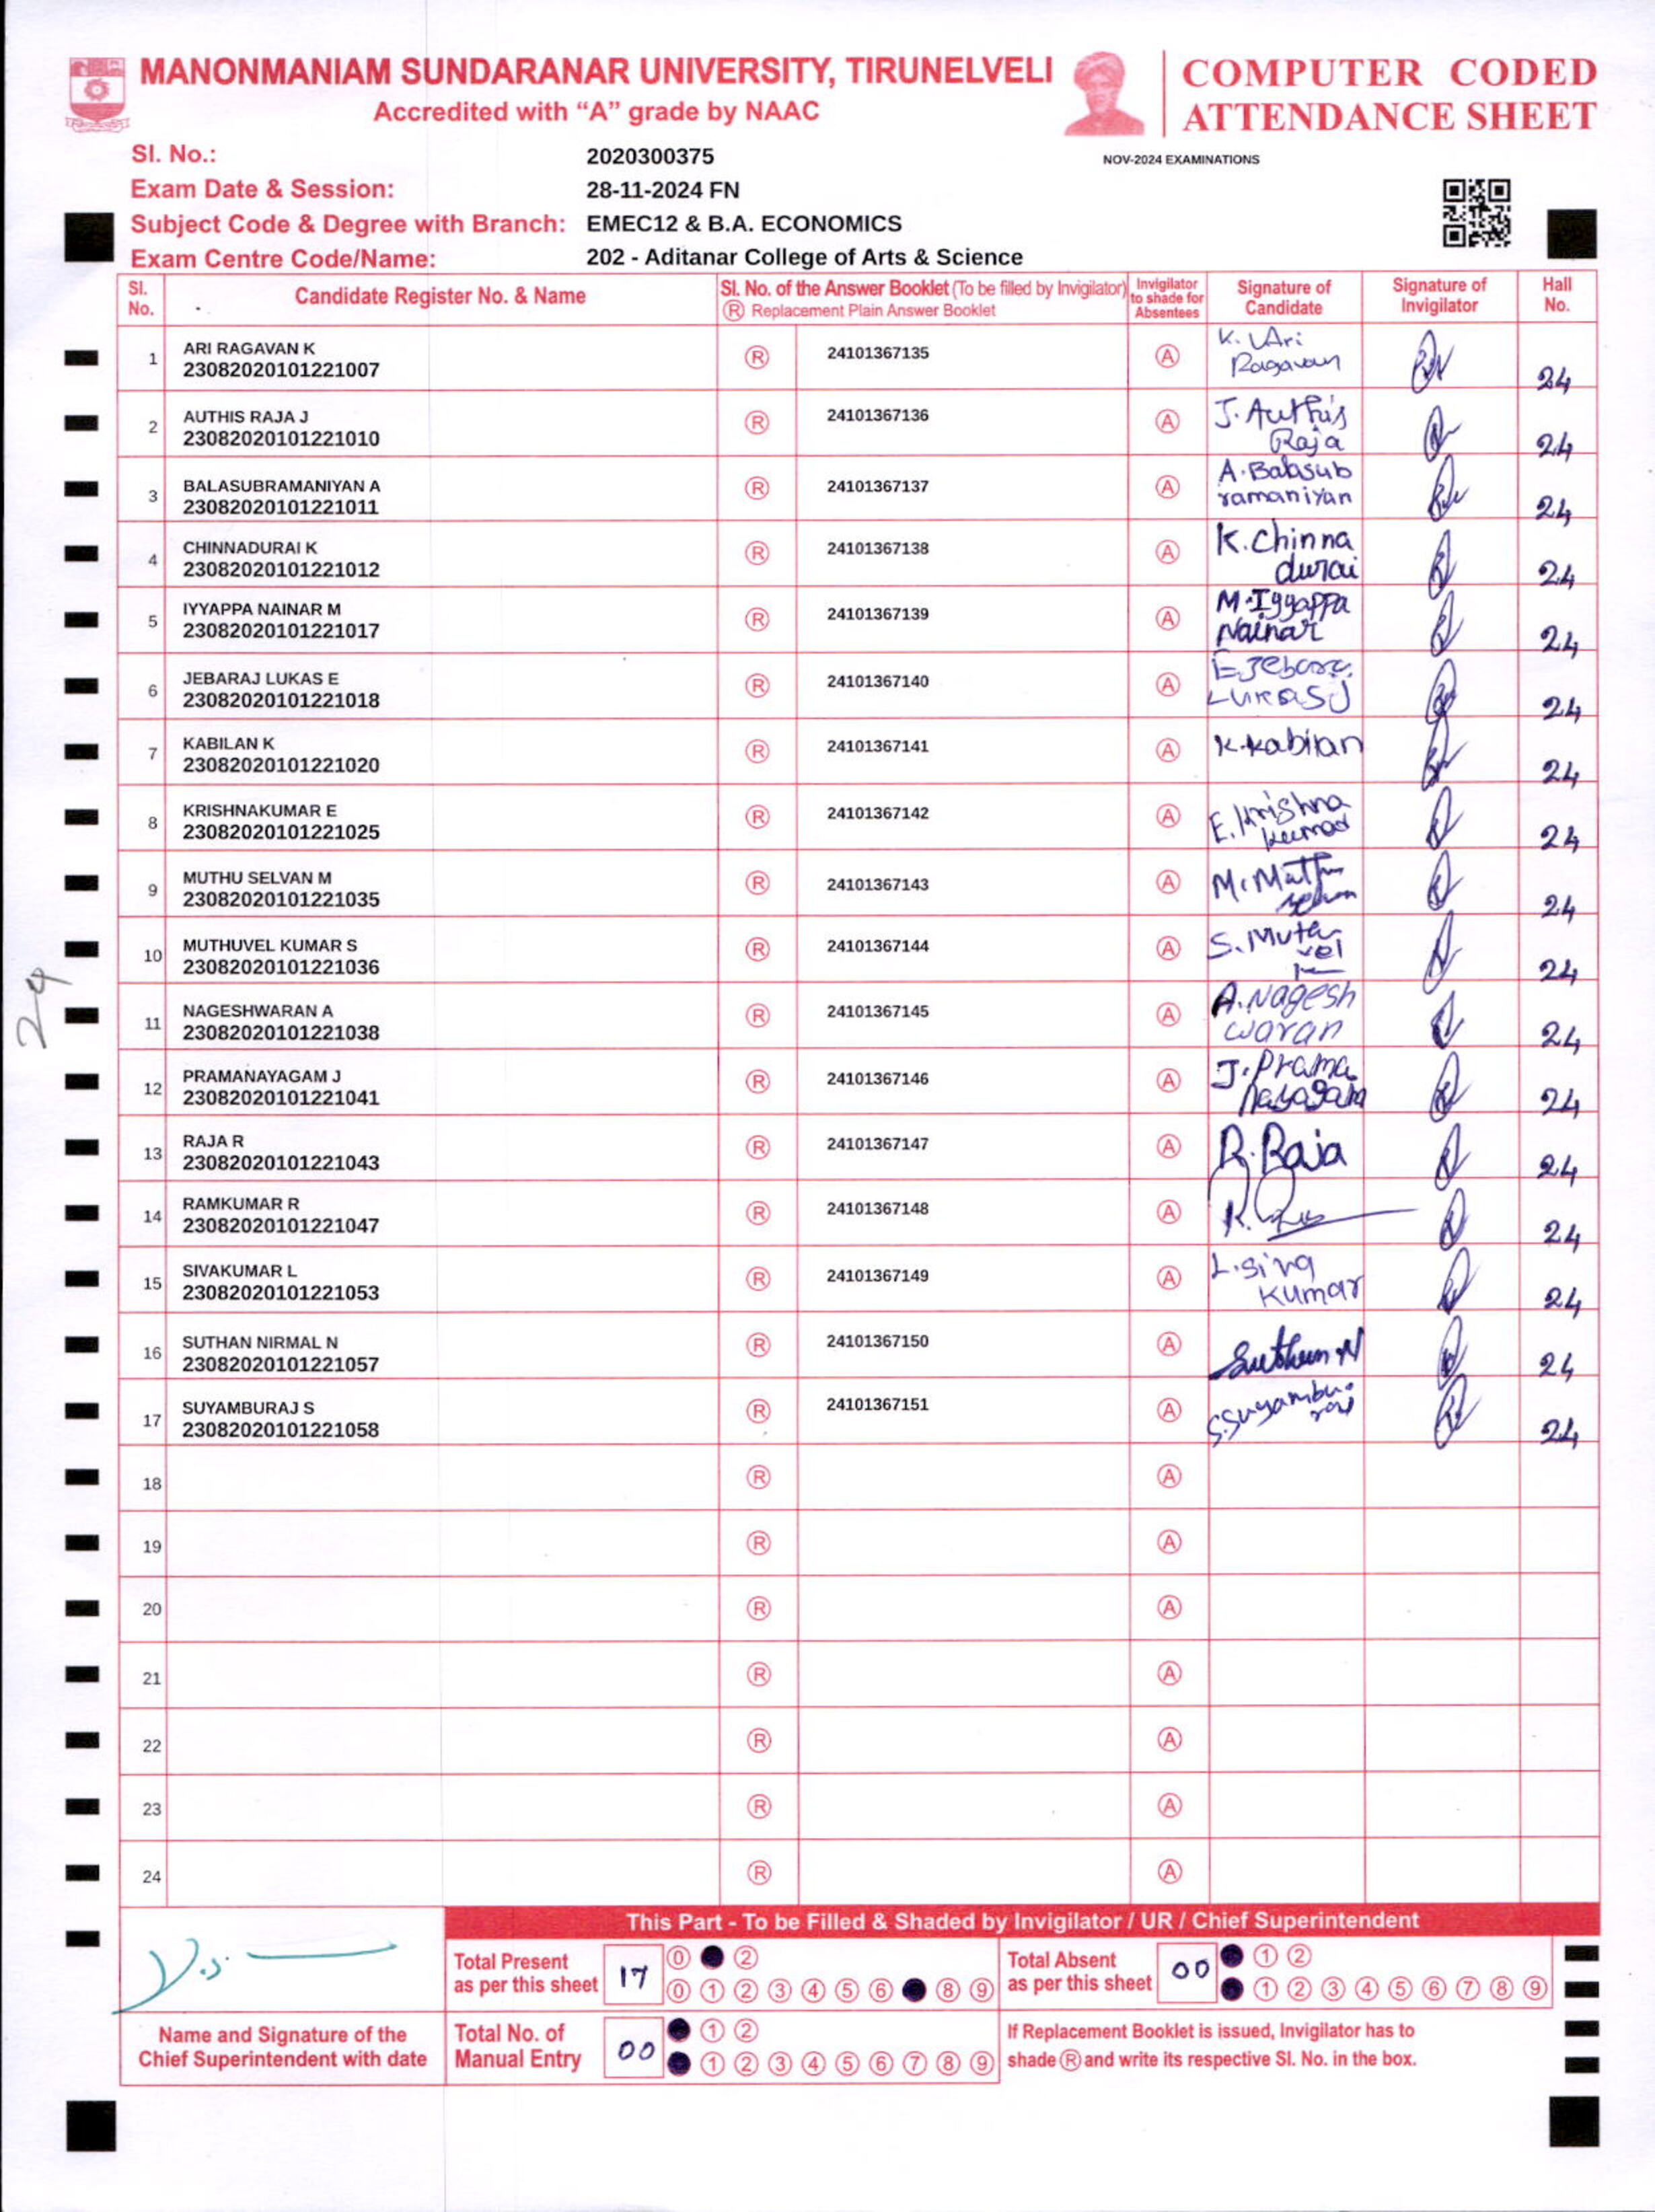 MANONMANIAM SUNDARANAR UNIVERSITY, TIRUNELVELI
Accredited with “A” grade by NAAC
COMPUTER CODED
ATTENDANCE SHEET
Sl. No.: 2020300375 NOV-2024 EXAMINATIONS
Exam Date & Session: 28-11-2024 FN
Subject Code & Degree with Branch: EMEC12 & B.A. ECONOMICS
Exam Centre Code/Name: 202 - Aditanar College of Arts & Science
Sl. No. Candidate Register No. & Name Sl. No. of the Answer Booklet (To be filled by Invigilator) Ⓡ Replacement Plain Answer Booklet Invigilator to shade for Absentees Signature of Candidate Signature of Invigilator Hall No.
1 ARI RAGAVAN K 23082020101221007 Ⓡ 24101367135 Ⓐ K. Ari Ragavan 24
2 AUTHIS RAJA J 23082020101221010 Ⓡ 24101367136 Ⓐ J. Authis Raja 24
3 BALASUBRAMANIYAN A 23082020101221011 Ⓡ 24101367137 Ⓐ A. Balasub ramaniyan 24
4 CHINNADURAI K 23082020101221012 Ⓡ 24101367138 Ⓐ K. Chinna durai 24
5 IYYAPPA NAINAR M 23082020101221017 Ⓡ 24101367139 Ⓐ M. Iyyappa Nainar 24
6 JEBARAJ LUKAS E 23082020101221018 Ⓡ 24101367140 Ⓐ 24
7 KABILAN K 23082020101221020 Ⓡ 24101367141 Ⓐ K. Kabilan 24
8 KRISHNAKUMAR E 23082020101221025 Ⓡ 24101367142 Ⓐ E. Krishna Kumar 24
9 MUTHU SELVAN M 23082020101221035 Ⓡ 24101367143 Ⓐ 24
10 MUTHUVEL KUMAR S 23082020101221036 Ⓡ 24101367144 Ⓐ 24
11 NAGESHWARAN A 23082020101221038 Ⓡ 24101367145 Ⓐ A. Nagesh waran 24
12 PRAMANAYAGAM J 23082020101221041 Ⓡ 24101367146 Ⓐ J. Prama nayagam 24
13 RAJA R 23082020101221043 Ⓡ 24101367147 Ⓐ R. Raja 24
14 RAMKUMAR R 23082020101221047 Ⓡ 24101367148 Ⓐ 24
15 SIVAKUMAR L 23082020101221053 Ⓡ 24101367149 Ⓐ L. Siva Kumar 24
16 SUTHAN NIRMAL N 23082020101221057 Ⓡ 24101367150 Ⓐ Suthan N 24
17 SUYAMBURAJ S 23082020101221058 Ⓡ 24101367151 Ⓐ S. Suyambu raj 24
18 Ⓡ Ⓐ
19 Ⓡ Ⓐ
20 Ⓡ Ⓐ
21 Ⓡ Ⓐ
22 Ⓡ Ⓐ
23 Ⓡ Ⓐ
24 Ⓡ Ⓐ
24
This Part - To be Filled & Shaded by Invigilator / UR / Chief Superintendent
Total Present as per this sheet 17
0 2
0 1 2 3 4 5 6 8 9
Total Absent as per this sheet 00
1 2
1 2 3 4 5 6 7 8 9
Name and Signature of the
Chief Superintendent with date
Total No. of
Manual Entry 00
1 2
1 2 3 4 5 6 7 8 9
If Replacement Booklet is issued, Invigilator has to
shade Ⓡ and write its respective Sl. No. in the box.